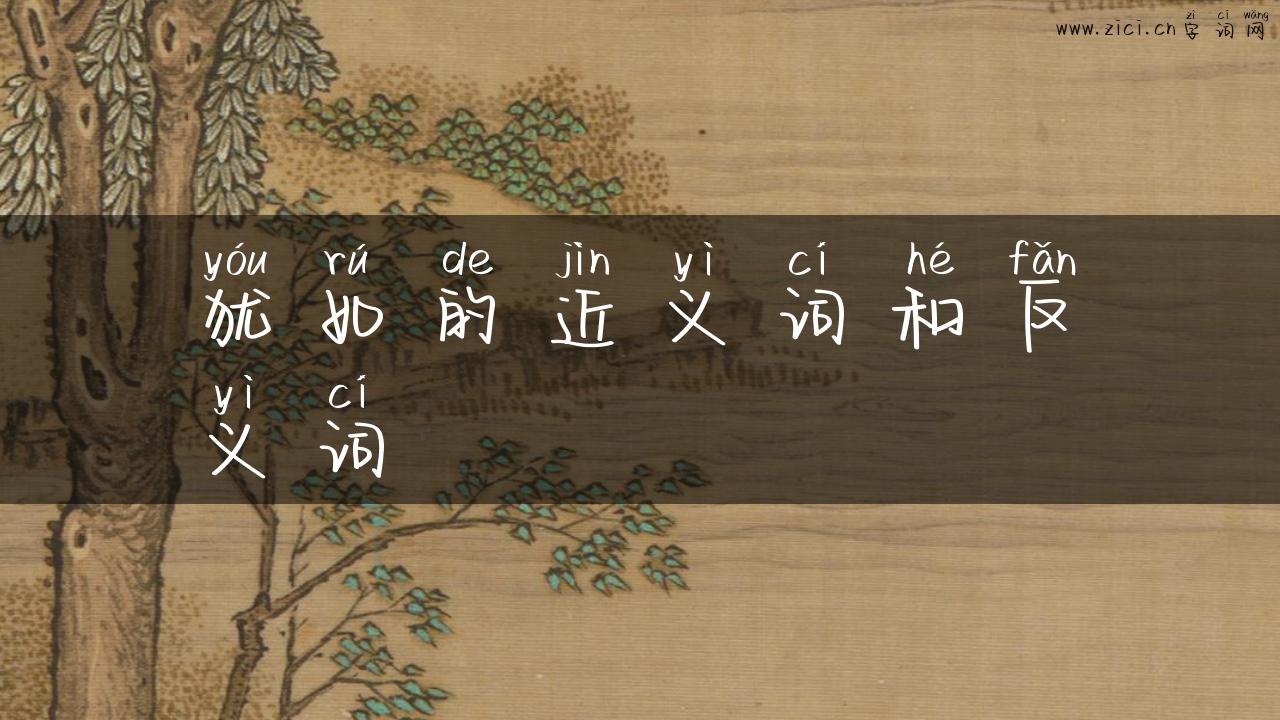 zì cí wǎng
www.zici.cn 字词网
yóu rú de jìn yì cí hé fǎn
犹如的近义词和反
yì cí
义词